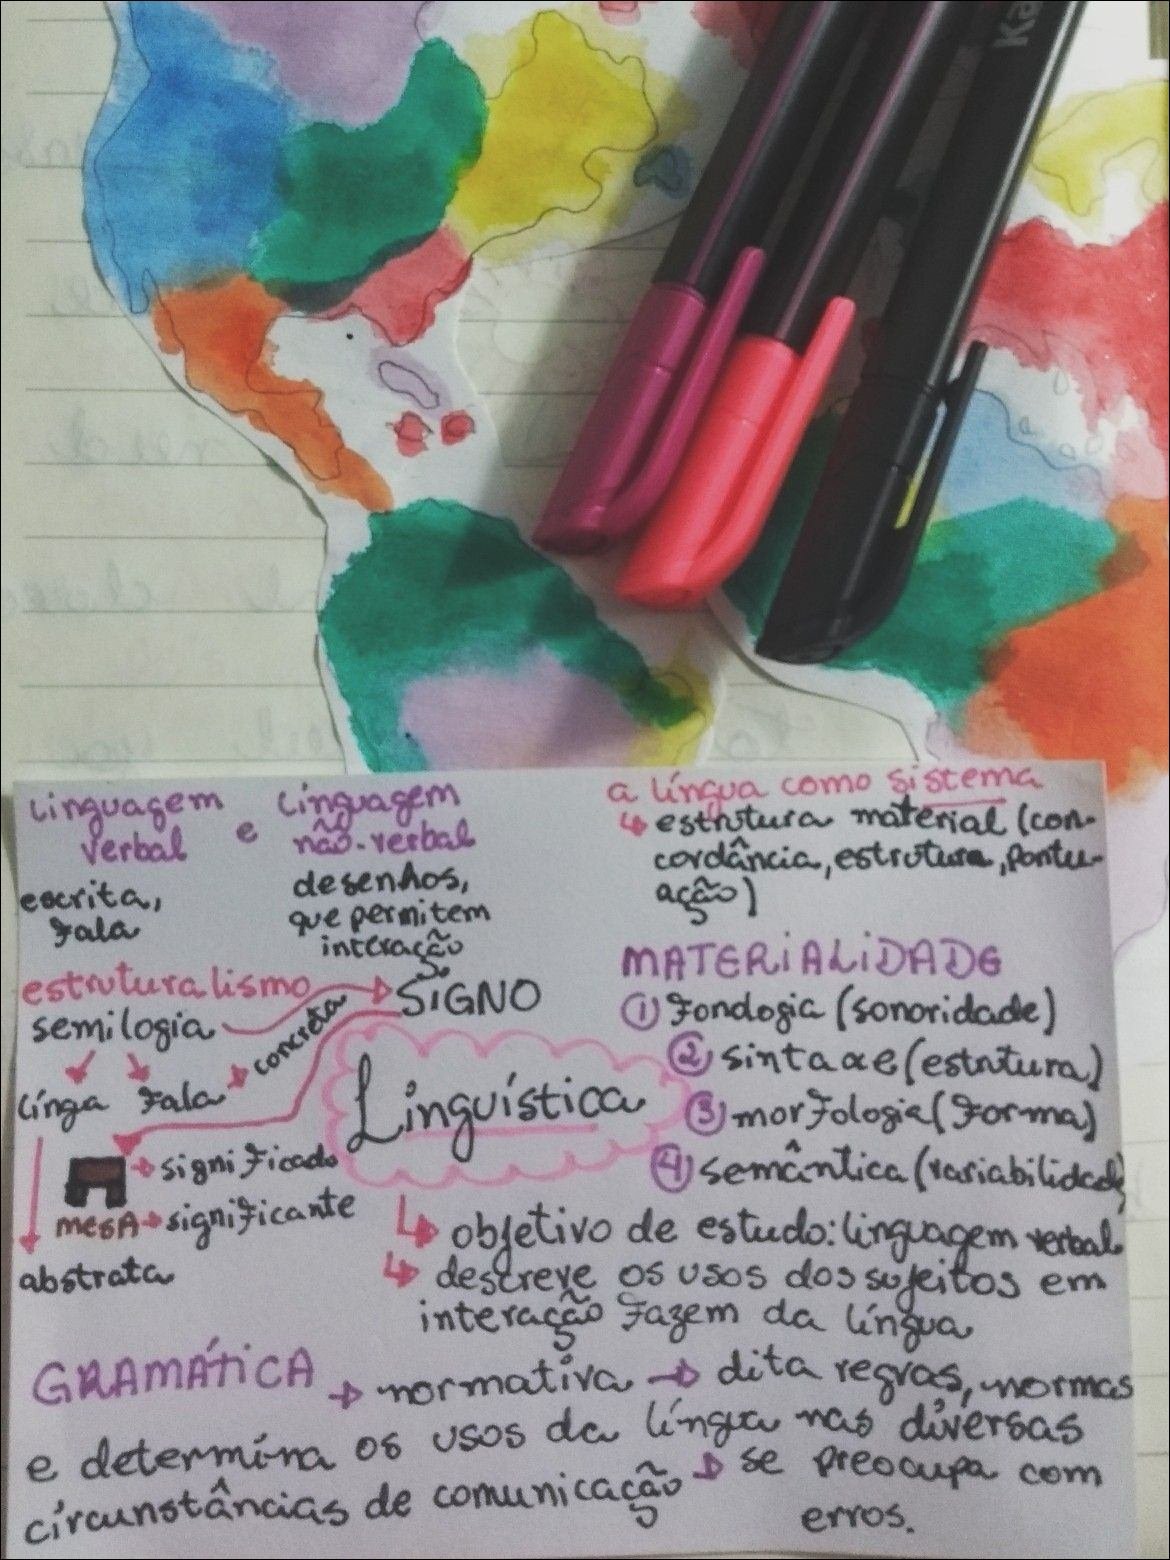 Ka
Linguagem
verbal
e
Linguagem
não-verbal
escrita,
fala
desenhos,
que permitem
interação
a língua como sistema
↳ estrutura material (con-
cordância, estrutura, pontu-
ação)
estruturalismo
semilogia
SIGNO
línga
fala
concreta
significado
MESA → significante
abstrata
Linguística
MATERIALIDADE
① Fonologia (sonoridade)
② sintaxe (estrutura)
③ morfologia (forma)
④ semântica (variabilidade)
↳ objetivo de estudo: linguagem verbal
↳ descreve os usos dos sujeitos em
interação fazem da língua
GRAMÁTICA → normativa → dita regras, normas
e determina os usos da língua nas diversas
circunstâncias de comunicação → se preocupa com
erros.